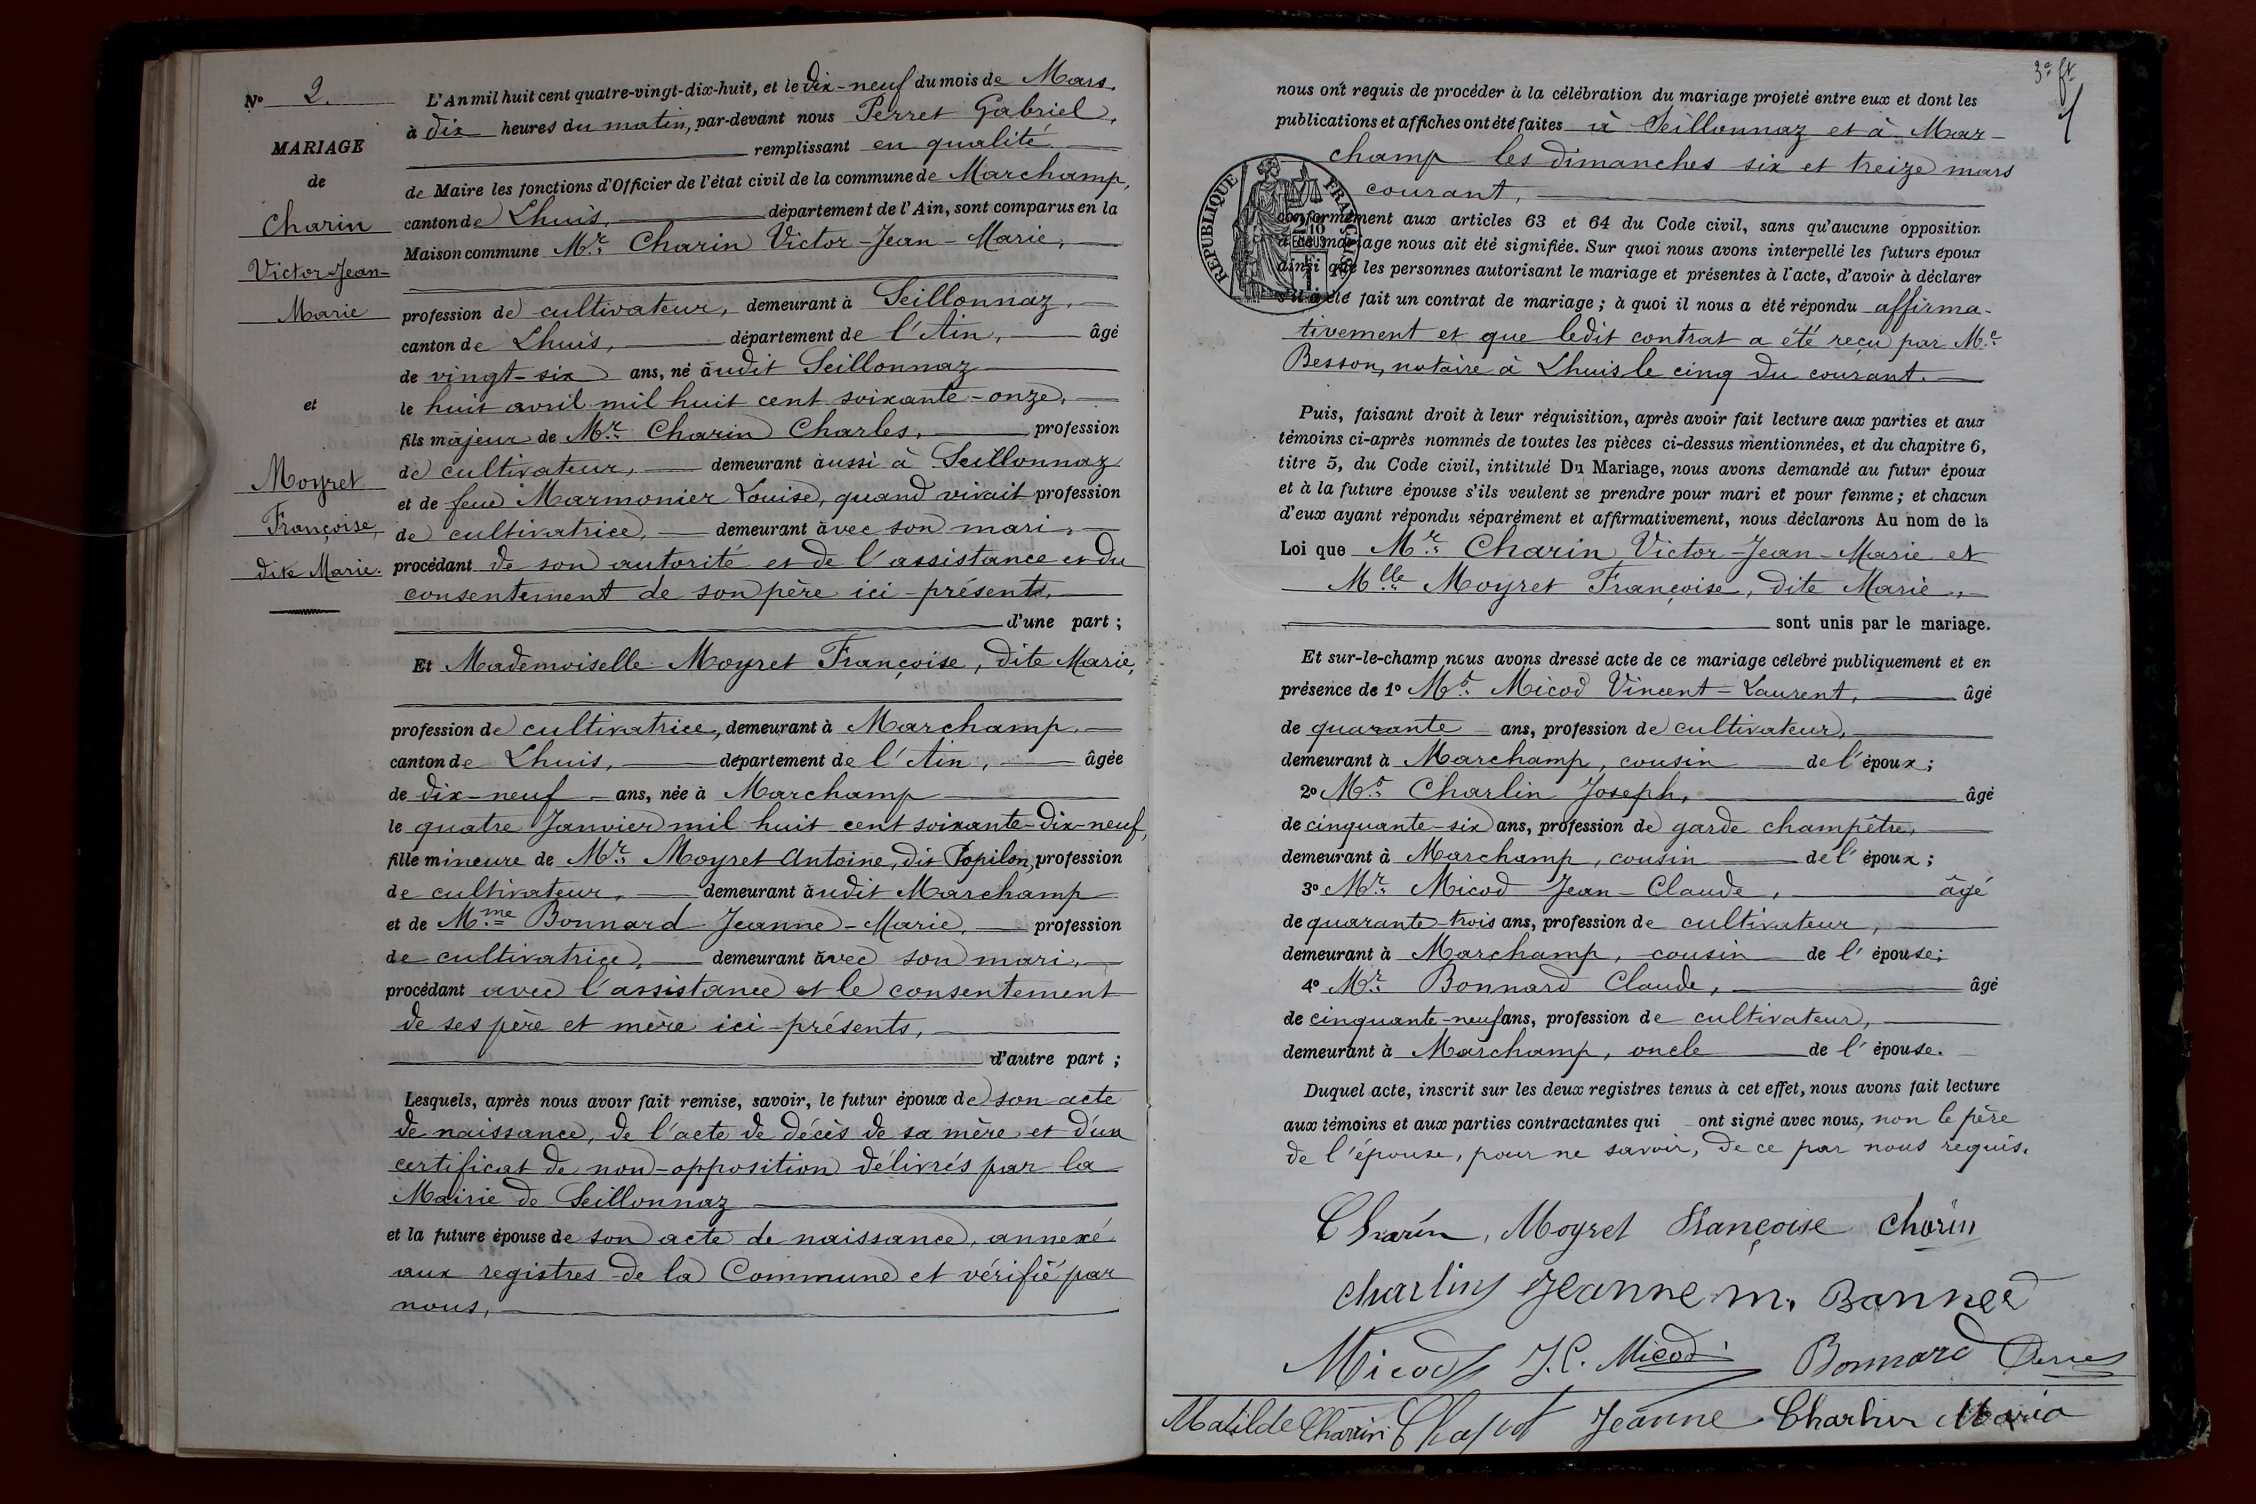 N° 2.
MARIAGE
de
Charin
Victor-Jean-
Marie
et
Moyret
Françoise,
dite Marie.
L'An mil huit cent quatre-vingt-dix-huit, et le dix-neuf du mois de Mars.
à dix heures du matin, par-devant nous Perret Gabriel,
remplissant en qualité
de Maire les fonctions d'Officier de l'état civil de la commune de Marchamp,
canton de Lhuis, département de l'Ain, sont comparus en la
Maison commune Mr. Charin Victor-Jean-Marie,
profession de cultivateur, demeurant à Seillonnaz,
canton de Lhuis, département de l'Ain, âgé
de vingt-six ans, né audit Seillonnaz
le huit avril mil huit cent soixante-onze,
fils majeur de Mr. Charin Charles, profession
de cultivateur, demeurant aussi à Seillonnaz
et de feue Marmonier Louise, quand vivait profession
de cultivatrice, demeurant avec son mari,
procédant de son autorité et de l'assistance et du
consentement de son père ici-présent,
d'une part ;
Et Mademoiselle Moyret Françoise, dite Marie,
profession de cultivatrice, demeurant à Marchamp,
canton de Lhuis, département de l'Ain, âgée
de dix-neuf ans, née à Marchamp
le quatre Janvier mil huit cent soixante-dix-neuf,
fille mineure de Mr. Moyret Antoine, dit Popilon, profession
de cultivateur, demeurant audit Marchamp
et de Mme Bonnard Jeanne-Marie, profession
de cultivatrice, demeurant avec son mari,
procédant avec l'assistance et le consentement
de ses père et mère ici-présents,
d'autre part ;
Lesquels, après nous avoir fait remise, savoir, le futur époux de son acte
de naissance, de l'acte de décès de sa mère et d'un
certificat de non-opposition délivrés par la
Mairie de Seillonnaz
et la future épouse de son acte de naissance, annexé
aux registres de la Commune et vérifié par
nous,
3e ft
nous ont requis de procéder à la célébration du mariage projeté entre eux et dont les
publications et affiches ont été faites à Seillonnaz et à Mar-
champ les dimanches six et treize mars
courant,
RÉPUBLIQUE FRANÇAISE
2/10 EN SUS
conformément aux articles 63 et 64 du Code civil, sans qu'aucune opposition
à ce mariage nous ait été signifiée. Sur quoi nous avons interpellé les futurs époux
ainsi que les personnes autorisant le mariage et présentes à l'acte, d'avoir à déclarer
s'il a été fait un contrat de mariage ; à quoi il nous a été répondu affirma-
tivement et que ledit contrat a été reçu par Me
Besson, notaire à Lhuis le cinq du courant.
Puis, faisant droit à leur réquisition, après avoir fait lecture aux parties et aux
témoins ci-après nommés de toutes les pièces ci-dessus mentionnées, et du chapitre 6,
titre 5, du Code civil, intitulé Du Mariage, nous avons demandé au futur époux
et à la future épouse s'ils veulent se prendre pour mari et pour femme ; et chacun
d'eux ayant répondu séparément et affirmativement, nous déclarons Au nom de la
Loi que Mr. Charin Victor-Jean-Marie et
Mlle Moyret Françoise, dite Marie,
sont unis par le mariage.
Et sur-le-champ nous avons dressé acte de ce mariage célébré publiquement et en
présence de 1° Mr. Micod Vincent-Laurent, âgé
de quarante ans, profession de cultivateur,
demeurant à Marchamp, cousin de l'époux ;
2° Mr. Charlin Joseph, âgé
de cinquante-six ans, profession de garde champêtre,
demeurant à Marchamp, cousin de l'époux ;
3° Mr. Micod Jean-Claude, âgé
de quarante-trois ans, profession de cultivateur,
demeurant à Marchamp, cousin de l'épouse ;
4° Mr. Bonnard Claude, âgé
de cinquante-neuf ans, profession de cultivateur,
demeurant à Marchamp, oncle de l'épouse.
Duquel acte, inscrit sur les deux registres tenus à cet effet, nous avons fait lecture
aux témoins et aux parties contractantes qui ont signé avec nous, non le père
de l'épouse, pour ne savoir, de ce par nous requis.
Charin, Moyret Françoise Charin
Charlin Jeanne m. Bonned
Micod J.C. Micod Bonnard
Matilde Charin Jeanne Charlin Maria